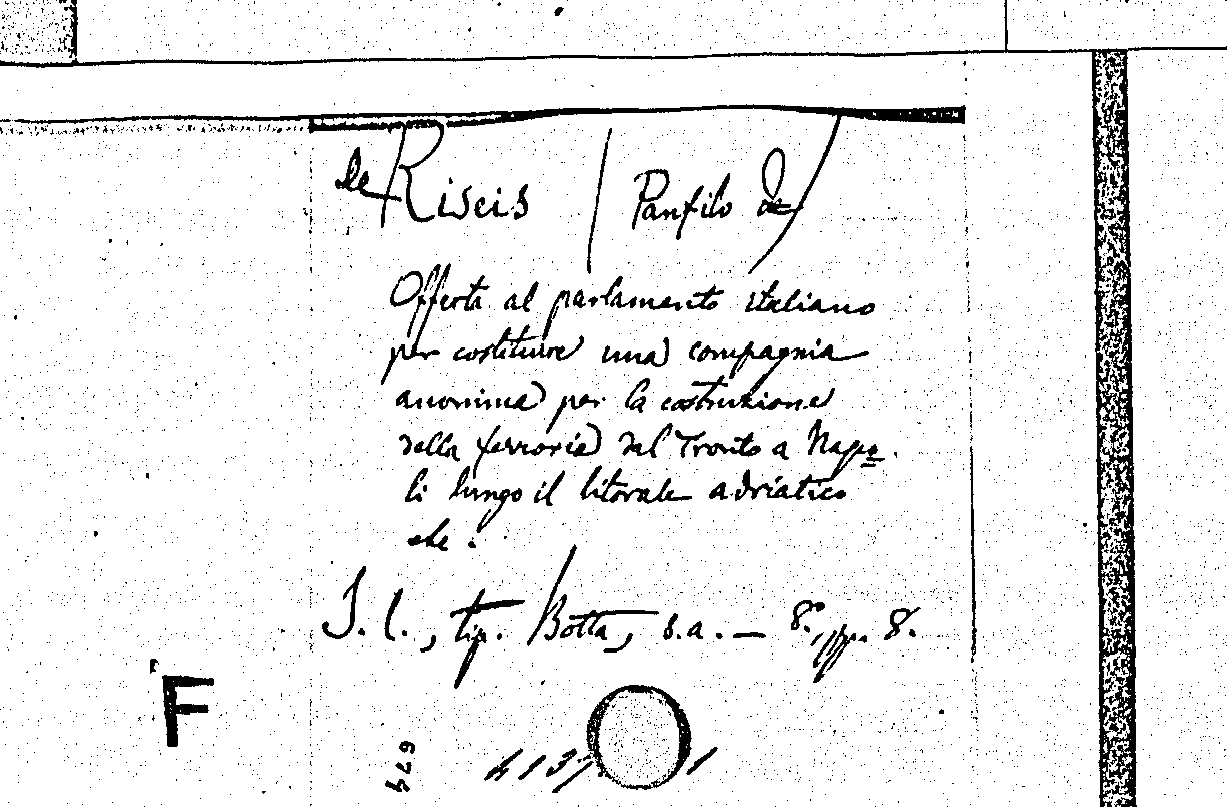 de Riseis / Panfilo de /
Offerta al parlamento italiano
per costituire una compagnia
anonima per la costruzione
della ferrovia dal Tronto a Napo
li lungo il litorale adriatico
etc.
S. l., tip. Botta, s.a. — 8.°, pp. 8.
F
674